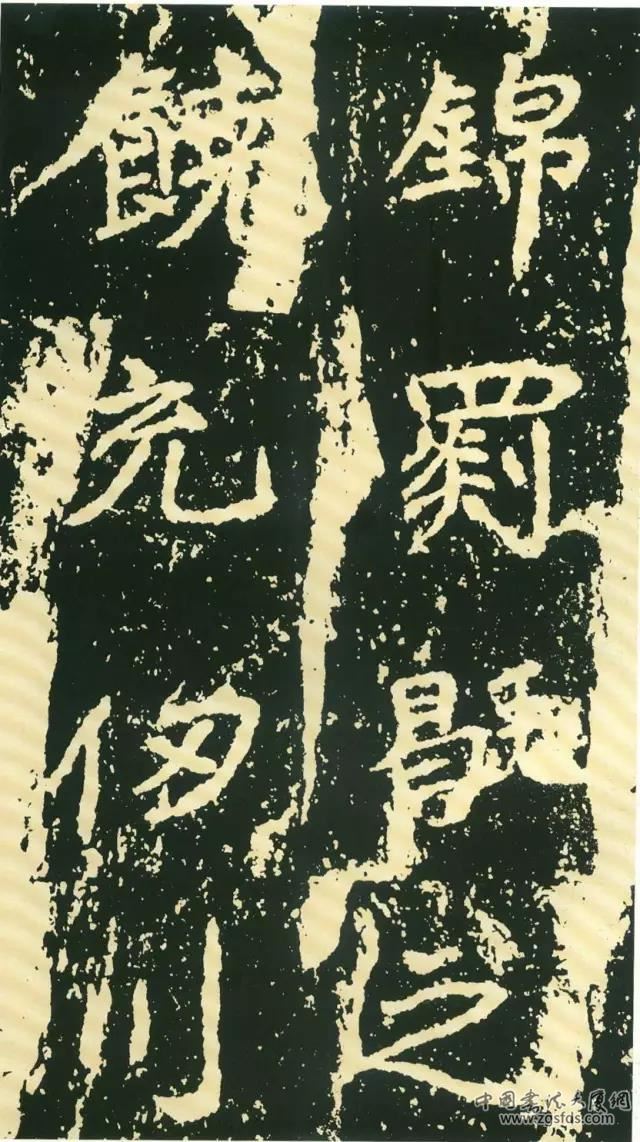 錦罽毼之
饒充仞川
中国书法大厦網
www.zgsfds.com